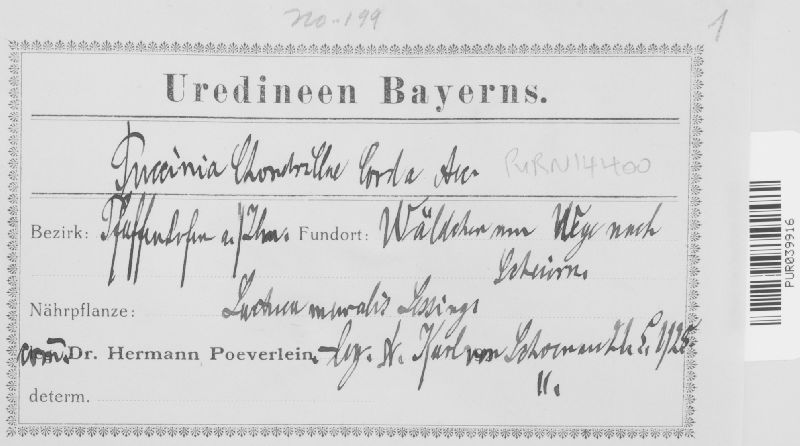 no-199
1
Uredineen Bayerns.
Puccinia Chondrillae Corda Auc.
PURN14400
Bezirk: Pfaffenhofen a./Ilm. Fundort: Wäldchen am Wege nach
Scheiern.
Nährpflanze: Lactuca muralis Lessing.
com. Dr. Hermann Poeverlein. leg. Karl von 5. 1925.
determ. ".
PUR039916